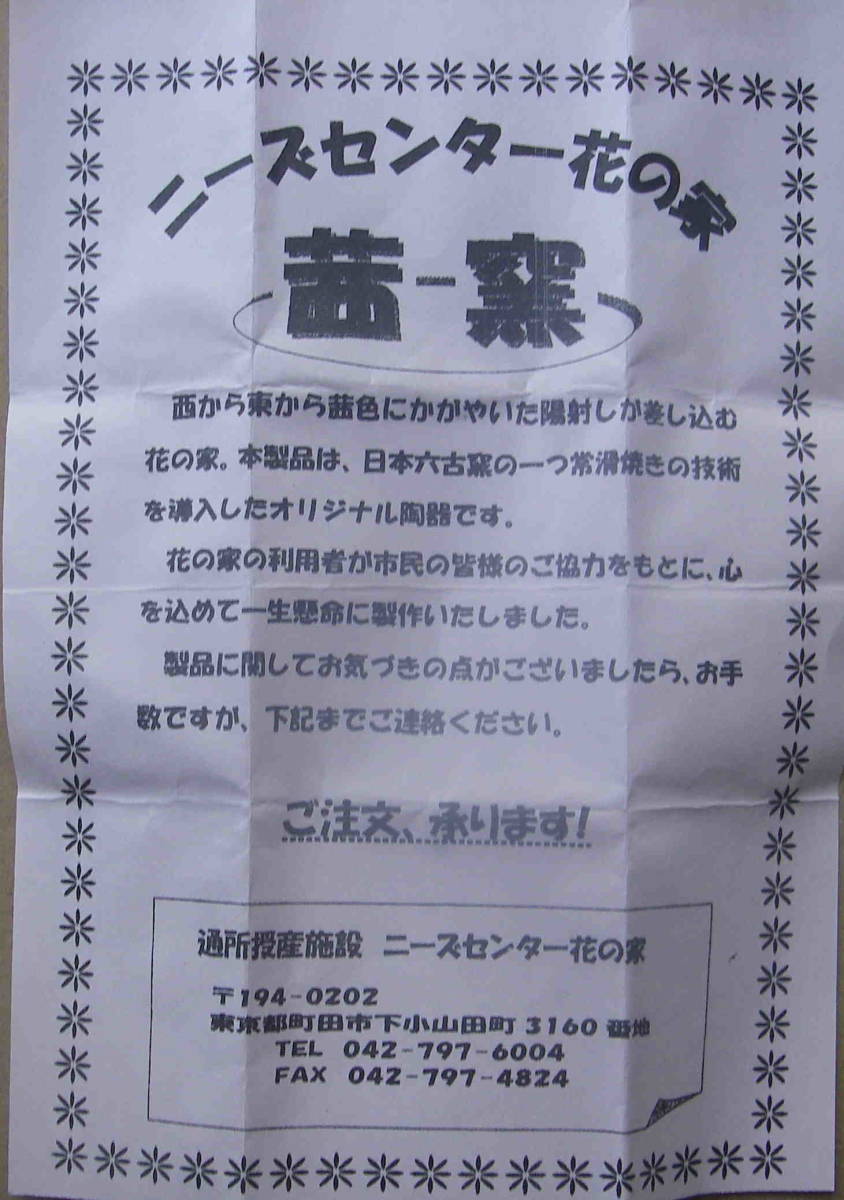 ニーズセンター花の家
茜-窯
西から東から茜色にかがやいた陽射しが差し込む
花の家。本製品は、日本六古窯の一つ常滑焼きの技術
を導入したオリジナル陶器です。
花の家の利用者が市民の皆様のご協力をもとに、心
を込めて一生懸命に製作いたしました。
製品に関してお気づきの点がございましたら、お手
数ですが、下記までご連絡ください。
ご注文、承ります!
通所授産施設 ニーズセンター花の家
〒194-0202
東京都町田市下小山田町3160番地
TEL 042-797-6004
FAX 042-797-4824